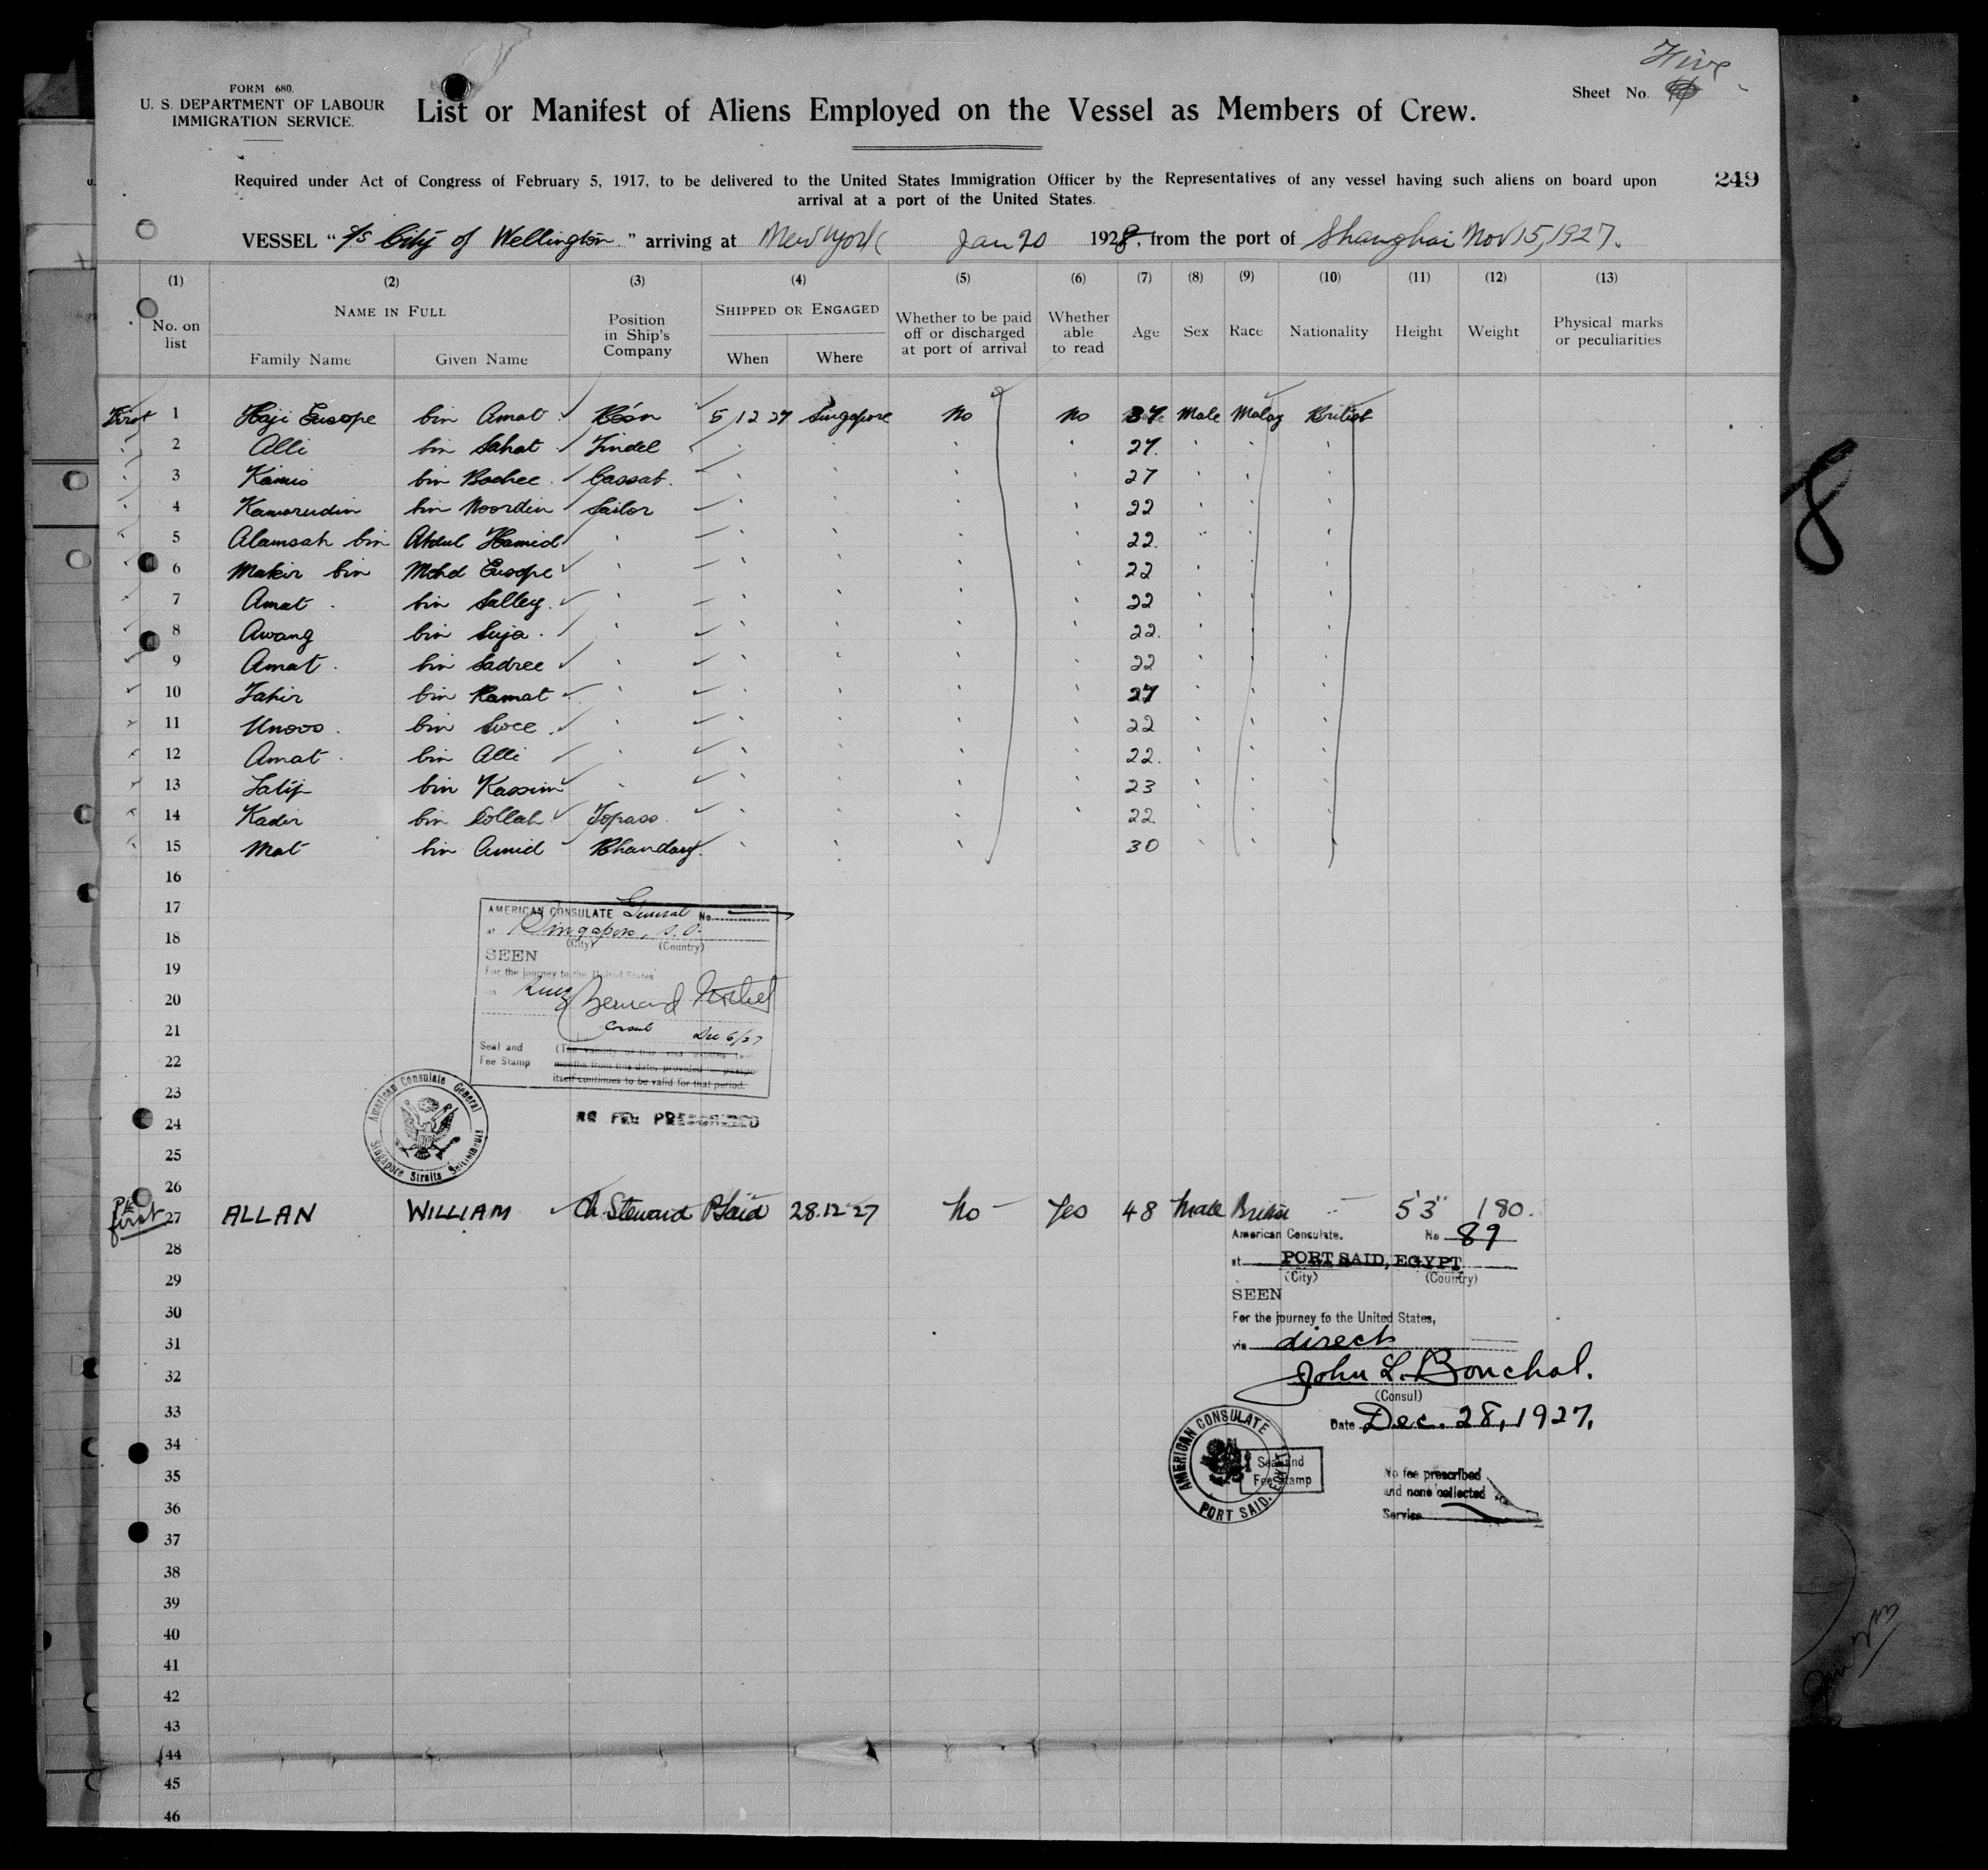 Five
FORM 680.
U. S. DEPARTMENT OF LABOUR
IMMIGRATION SERVICE.
List or Manifest of Aliens Employed on the Vessel as Members of Crew.
Sheet No.
Required under Act of Congress of February 5, 1917, to be delivered to the United States Immigration Officer by the Representatives of any vessel having such aliens on board upon
arrival at a port of the United States.
249
VESSEL "S/S City of Wellington" arriving at New York Jan 20 1928, from the port of Shanghai Nov 15, 1927.
(1) (2) (3) (4) (5) (6) (7) (8) (9) (10) (11) (12) (13)
No. on list NAME IN FULL Family Name Given Name Position in Ship's Company SHIPPED OR ENGAGED When Where Whether to be paid off or discharged at port of arrival Whether able to read Age Sex Race Nationality Height Weight Physical marks or peculiarities
First 1 Haji Eusope bin Amat 5 12 27 Singapore No No 37 Male Malay British
2 Alli bin Sahat Tindel 27.
3 Kamis bin Bachee Cassab. 27
4 Kamarudin bin Noordin Sailor 22
5 Alamsah bin Abdul Hamid 22.
6 Makir bin Mohd Eusope 22
7 Amat bin Salley. 22
8 Awang bin Suja. 22.
9 Amat. bin Sadree 22
10 Tahir bin Ramat 27
11 bin Swee. 22
12 Amat. bin Alli 22.
13 Latip bin Kassim 23
14 Kader bin Topass. 22.
15 Mat bin Amid Bhandary. 30
16
17
18
19
20
21
22
23
24
25
26
AMERICAN CONSULATE General No.
at Singapore, S. S.
(City) (Country)
SEEN
For the journey to the United States
Bernard
Consul Dec 6/27
Seal and
Fee Stamp
(The validity of this visa expires
months from this date, provided
itself continues to be valid for that period.
American Consulate General
Singapore Straits Settlements
NO FEE PRESCRIBED
first 27 ALLAN WILLIAM Ch Steward P Said 28.12.27 No Yes 48 Male British 5'3" 180.
28
29
30
31
32
33
34
35
36
37
38
39
40
41
42
43
44
45
46
American Consulate. No 89
at PORT SAID, EGYPT
(City) (Country)
SEEN
For the journey to the United States,
via direct
John L. Bouchal.
(Consul)
Date Dec. 28, 1927.
AMERICAN CONSULATE
PORT SAID. EGYPT
Seal and
Fee Stamp
No fee prescribed
and none collected
Service
8